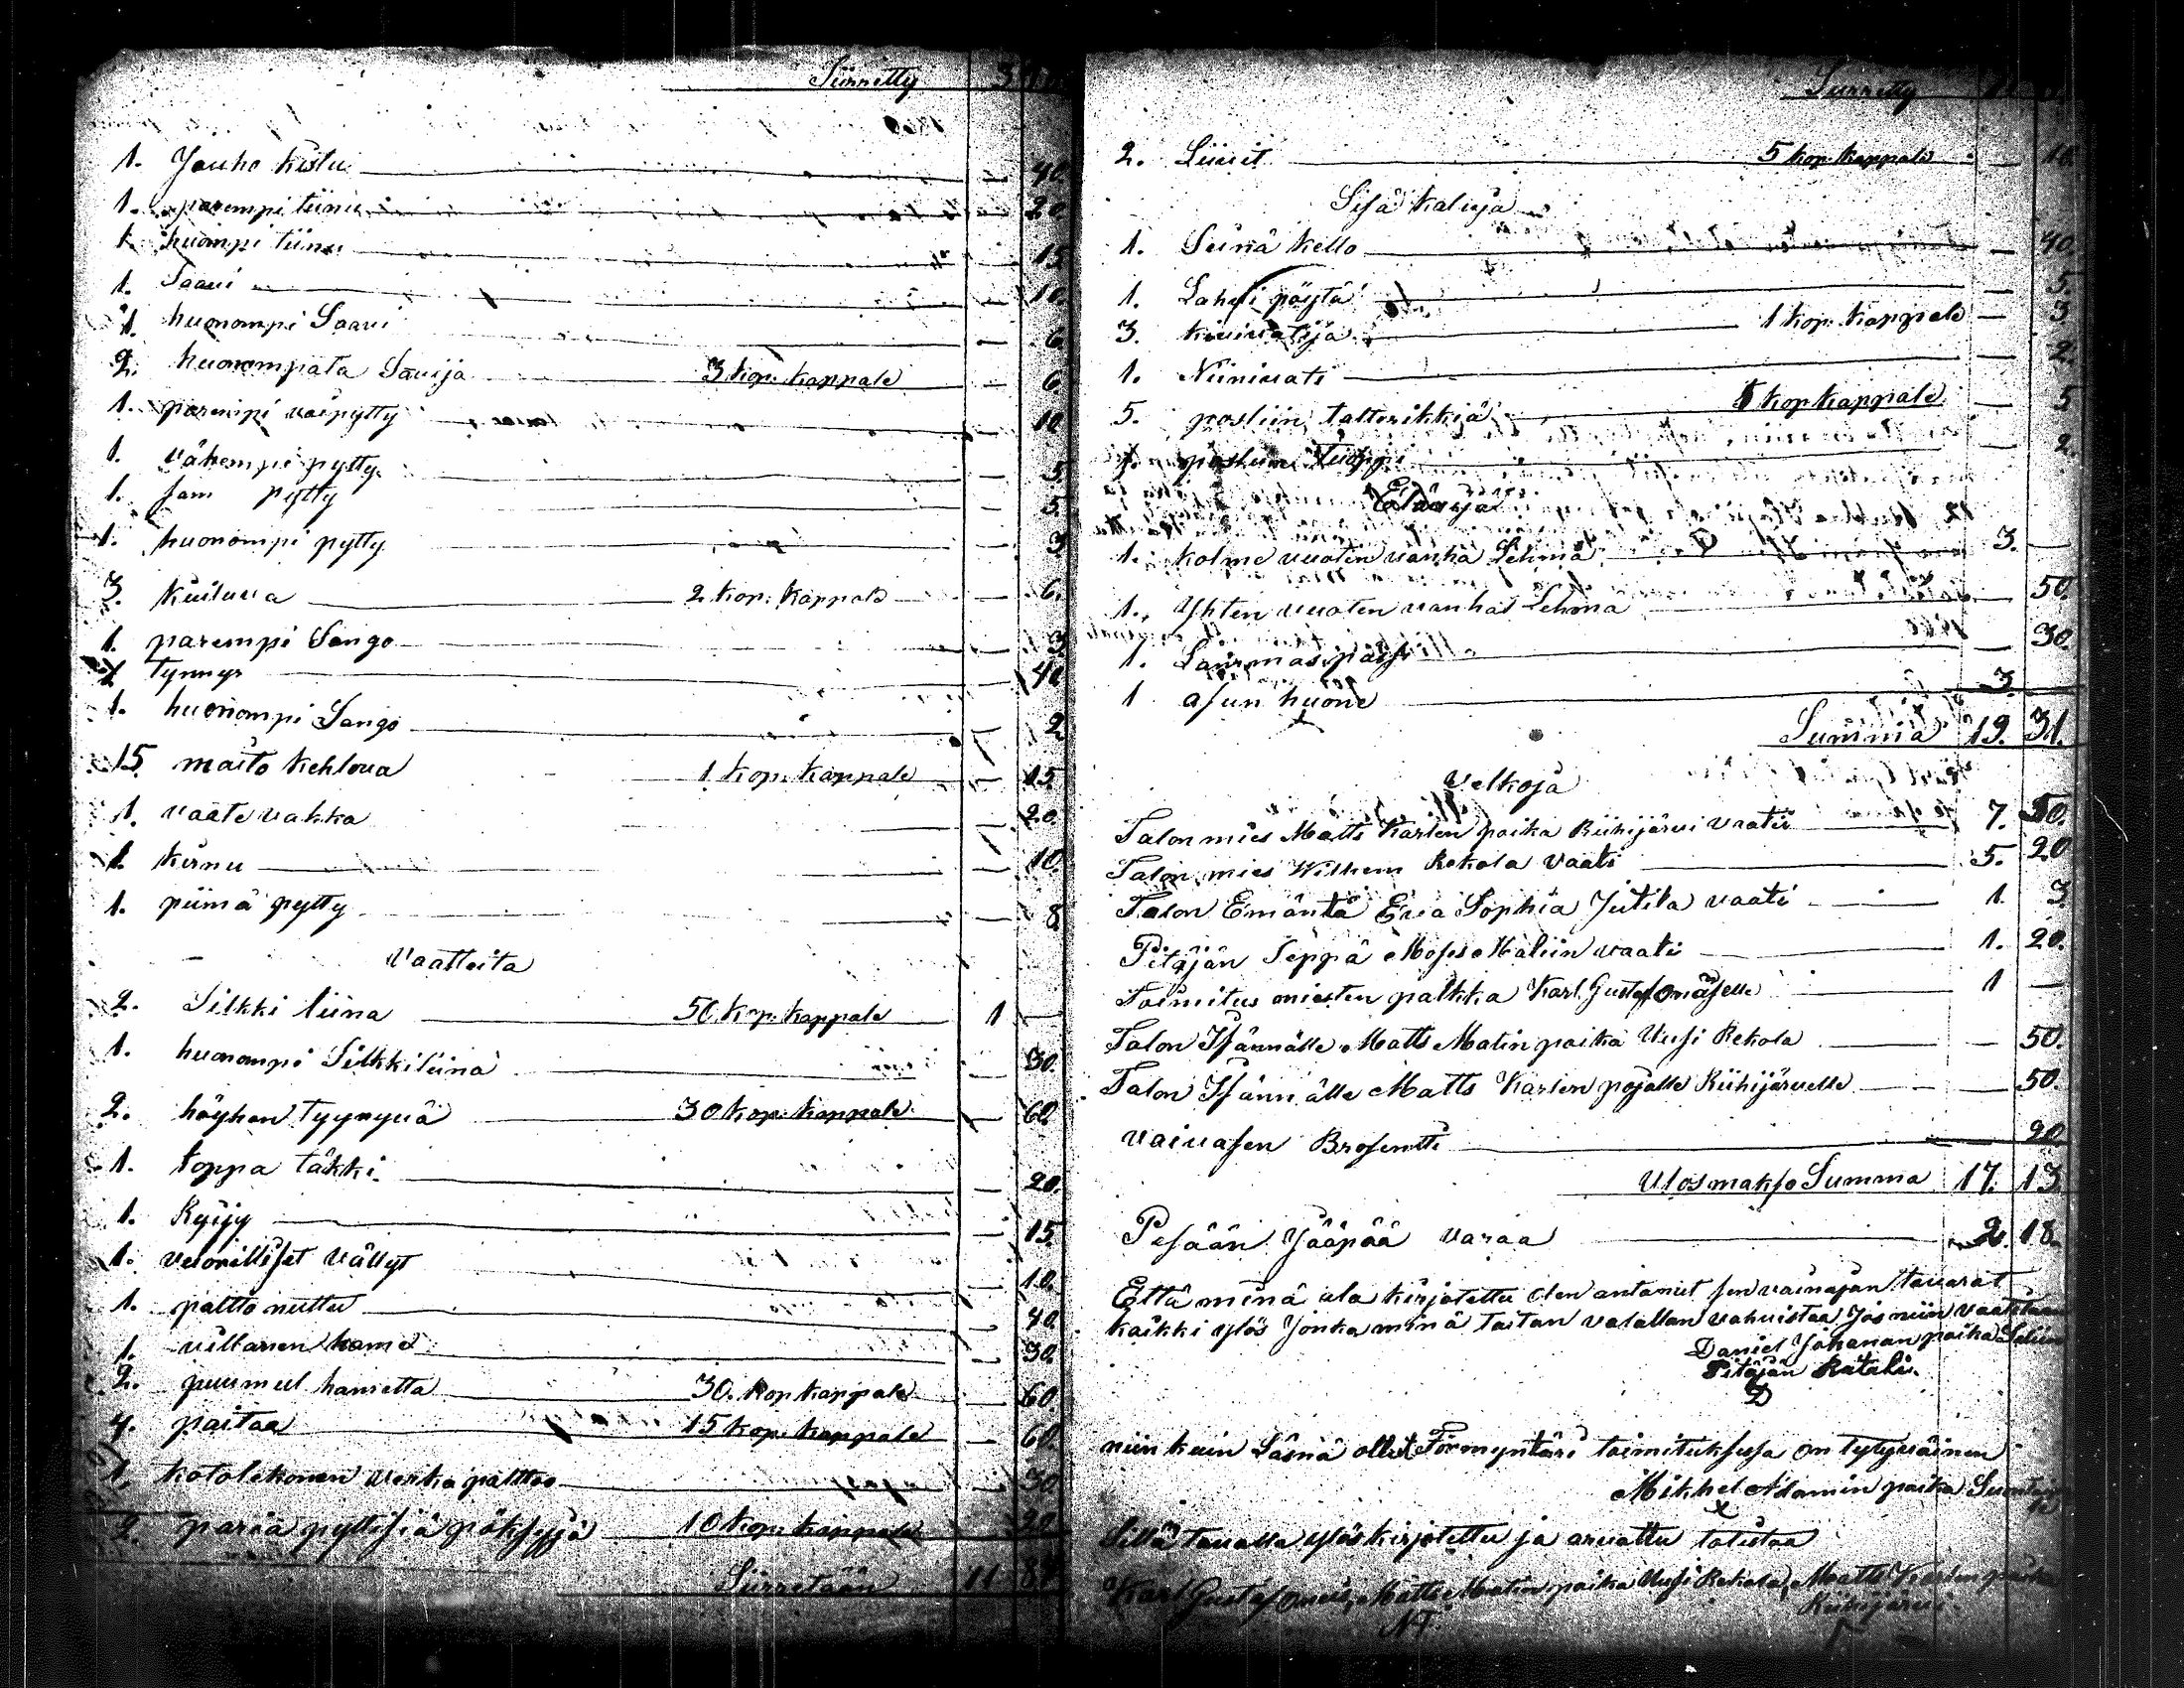 Siirretty 3
1. Jauho kistu — 40.
1. parempi tiinu — 20
1. huompi tiinu — 15
1. Saavi — 10.
1. huonompi Saavi — 6.
2. huonompata Savija 3 kop. kappale — 6.
1. parempi voi pytty — 10
1. vähempi pytty — 5.
1. sam pytty — 5.
1. huonompi pytty — 3
3. kuiluva 2 kop. kappale — 6.
1. parempi Sango — 3.
1 tynnyr — 40
1. huonompi Sango — 2
15. maito kehlova 1 kop. kappale — 15
1. vaate vakka — 20
1. kirnu — 10.
1. piimä pytty — 8
Vaatteita
2. Silkki liina 50 kop. kappale 1 —
1. huonompi Silkkiliina — 30.
2. höyhen tyynyvä 30 kop. kappale — 60
1. toppa täkki — 20.
1. Ryijy — 15
1. velonilliset vällyt — 10.
1. paltto nuttu — 40.
1. villanen hame — 30.
2. puumul hametta 30. kop kappale — 60.
4. paitaa 15 kop. kappale — 60.
1. kotolekonen verka palttoo — 30
2. paria pyttisiä pöksyjä 10 kop. kappale — 20
Siirretään 11
Siirretty
2. Liivit 5 kop. kappale — 10.
Sisä kaluja
1. Seinä kello — 40.
1. Lahvi pöytä — 5.
3. 1 kop. kappale — 3
1. Niinivati — 2.
5. posliin talterikkia 1 kop kappale — 5
1. posliini tuoppi — 2.
Eläviä
1. kolme vuoten vanha Lehmä 3. —
1. Yhten vuoten vanha Lehmä 50.
1. — 30.
1 asun huone 3.
Summa 19. 31.
Velkoja
Talon mies Matts Karlen poika Riihijärvi vaati 7. 50.
Talon mies Wilhem Rekola vaati 5. 20
Talon Emäntä Eva Sophia Jutila vaati 1. 3.
Pitäjän Seppä Moses Malin vaati 1. 20.
Toimitus miesten palkka Karl Gustaf Omäselle 1 —
Talon Isännälle Matts Matin poika Uusi Rekola — 50.
Talon Isännälle Matts Karlen pojalle Riihijärvelle — 50.
vaivasen Brosentti 20
Ulosmakso Summa 17. 13
Pesään Jääpää varaa 2. 18.
Että minä ala kirjotettu olen antanut sen vainajan tavarat
kaikki ylös Jonka minä taitan valallan vahvistaa Jos niin vaaditaan
Daniel Johanan poika Selin
Pitäjän Rätäli.
D
niin kuin Läsnä ollut Förmyntäri toimituksesa on tytyväinen
Mikkel Adamin poika
x
Sillä tavalla ylöskirjotettu ja arvattu totistaa
Karl Gustaf Matts Matin poika Uusi Rekola, Matts Karlen poika
Riihijärvi.